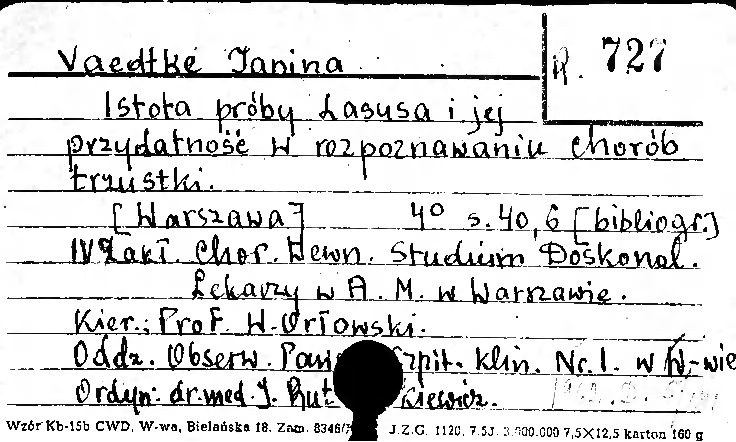 Vaedtke Janina
R. 727
Istota próby Lasusa i jej
przydatność w rozpoznawaniu chorób
trzustki.
[Warszawa] 4° s. 40, 6 [bibliogr.]
IV Zakł. Chor. Wewn. Studium Doskonal.
Lekarzy w A. M. w Warszawie.
Kier.: Prof. W. Orłowski.
Oddz. Obserw. Szpit. Klin. Nr. 1. w W-wie
Ordyn: dr. med. J.
Wzór Kb-15b CWD, W-wa, Bielańska 18. Zam. J.Z.G. 1120. 7.5J. 3.000.000 7,5X12,5 karton 160 g